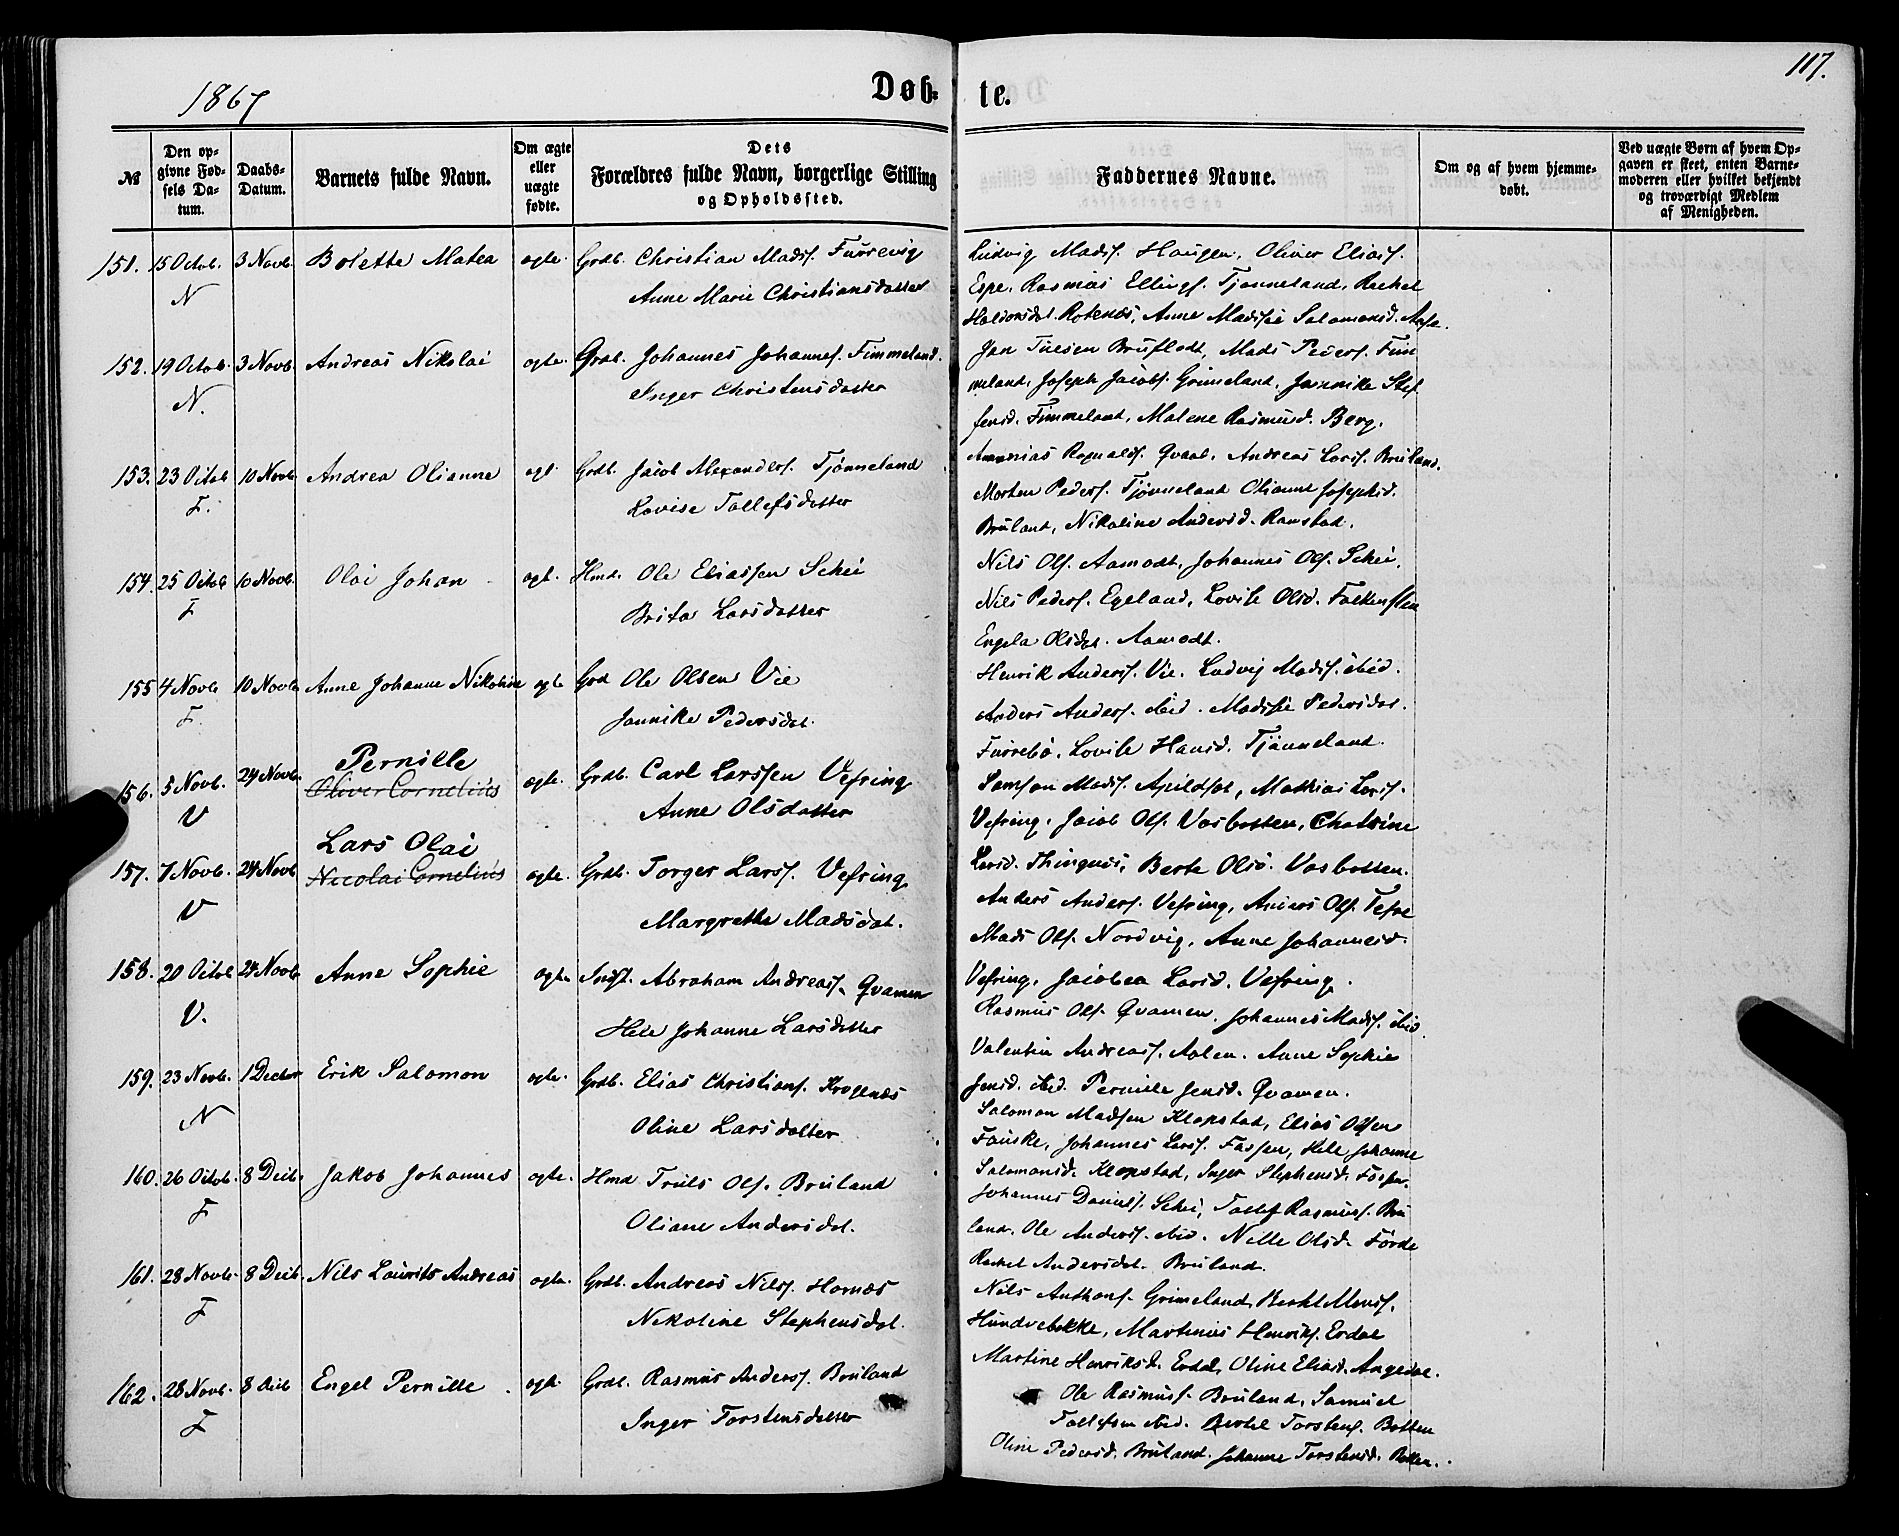 1867
Døb-
te.
117.
№
Den op-
givne Fød-
sels Da-
tum.
Daabs-
Datum.
Barnets fulde Navn.
Om ægte
eller
uægte
fødte.
Dets
Forældres fulde Navn, borgerlige Stilling
og Opholdssted.
Faddernes Navne.
Om og af hvem hjemme-
døbt.
Ved uægte Børn af hvem Op-
gaven er skeet, enten Barne-
moderen eller hvilket bekjendt
og troværdigt Medlem
af Menigheden.
151. 15 Octob. 3 Novb. Bolette Matea ægte. Grdb. Christian Mads. Furrevig
N Anne Marie Christiansdatter
Ludvig Mads. Haugen, Oliver Elias.
Espe. Rasmus Ellings. Tjønneland, Rachel
Haldorsdat. Rotenæs, Anne Madsie Salamonsd.
152. 19 Octob. 3 Novb. Andreas Nikolai ægte. Grdb. Johannes Johannes. Fimmeland.
N. Inger Christensdatter
Jan Bruflodt, Mads Peders. Fim
meland, Joseph Jacobs. Grimeland, Jannike Stef
fensd. Fimmeland, Malene Rasmusd. Berg.
153. 23 Octob 10 Novb. Andrea Olianne ægt. Grdb. Jacob Alexanders. Tjønneland
F. Lovise Tollefsdatter
Ammnias Ragnalds. Qvaal. Andreas Lars. Bruland.
Morten Peders. Tjønneland Olianne Josephsd.
Bruland, Nikoline Andersd. Ramstad.
154. 25 Octob 10 Novb. Olai Johan ægt. Hmd. Ole Eliassen Schei
F Brita Larsdatter
Nils Ols. Aamodt, Johannes Ols. Schei,
Nils Peders. Egeland, Lovise Olsd. Falkensten
Engela Olsdat. Aamodt.
155 4 Novb 10 Novb Anne Johanne Nikoline ægte Grd Ole Olsen Vie
F. Jannike Pedersdat.
Henrik Anders. Vie. Ludvig Mads. ibid.
Anders Anders. ibid. Madsie Pedersdat.
Furrebø. Lovise Hansd. Tjønneland.
Pernille
156. 5 Novb. 24 Novb. Oliver Cornelius ægte. Grdb. Carl Larssen Vefring
V Anne Olsdatter
Samson Mads. Apildset, Mathias Lars.
Vefring. Jacob Ols. Vasbotten, Chatrine
Larsd. Thingnes, Berte Olsd. Vasbotten.
Lars Olai
157. 7 Novb. 24 Novb Nicolai Cornelius ægte. Grdb. Torger Lars. Vefring
V Margrethe Madsdat.
Anders Anders. Vefring, Anders Ols. Tefre
Mads Ols. Nordvig, Anne Johannesd.
Vefring, Jacobea Larsd. Vefring.
158. 20 Octob 24 Novb. Anne Sophie ægte Indst. Abraham Andreas. Qvamen
V. Hele Johanne Larsdatter
Rasmus Ols. Qvamen. Johannes Mads. ibid
Valentin Andreas. Aalen. Anne Sophie
Jensd. ibid. Pernille Jensd. Qvamen.
159. 23 Novb. 1 Decbr Erik Salomon ægte. Grdb. Elias Christians. Krogenæs
N Oline Larsdatter
Salomon Madsen Klopstad, Elias Olsen
Fauske, Johannes Lars. Fossen, Hele Johanne
Salamonsd. Klopstad, Inger Stephensd. Fossen.
160. 26 Octob. 8 Decb. Jakob Johannes ægte. Hmd Truls Ols. Bruland
F Oliane Andersdat.
Johannes Daniels. Schei, Tollef Rasmus. Bru
land. Ole Anders. ibid. Nille Olsd. Førde
Rachel Andersdat. Bruland.
161. 28 Novb. 8 Decb. Nils Laurits Andreas ægte. Grdb. Andreas Nils. Hornæs
F Nikoline Stephensdat.
Nils Anthons. Grimeland, Berthel Mons.
Hundvebakke, Martinus Henriks. Erdal
Martine Henriksd. Erdal, Oline Eliasd. Angedal.
162. 28 Novb. 8 Decb Engel Pernille ægt. Grdb. Rasmus Anders. Bruland
F Inger Torstensdatter
Ole Rasmus. Bruland, Samuel
Tollefsen ibid. Berthel Torstens. Botten
Oline Pedersd. Bruland. Johanne Torstensd. Botten.